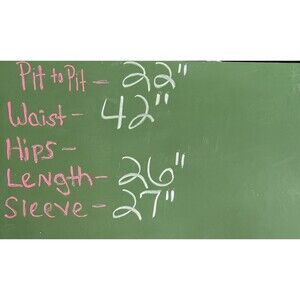 Pit to Pit - 22"
Waist - 42"
Hips -
Length - 26"
Sleeve - 27"